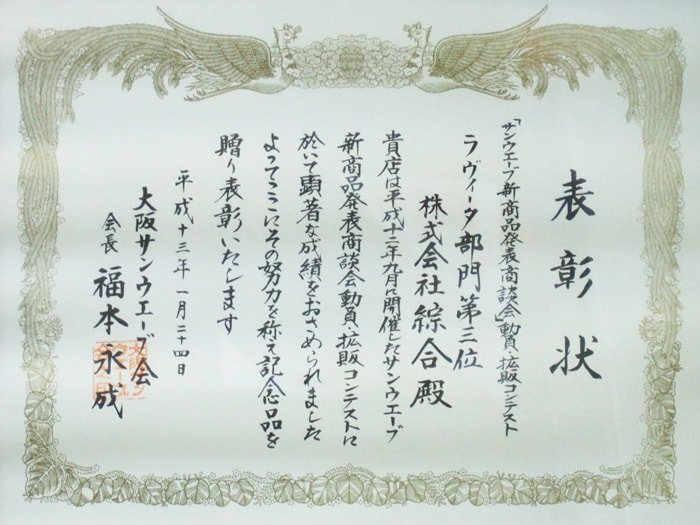 表彰状
「サンウエーブ新商品発表商談会」動員、拡販コンテスト
ラヴィータ部門第三位
株式会社綜合殿
貴店は平成十二年九月に開催したサンウエーブ
新商品発表商談会動員、拡販コンテストに
於いて顕著な成績をおさめられました
よってここにその努力を称え記念品を
贈り表彰いたします
平成十三年一月二十四日
大阪サンウエーブ会
会長 福本永成